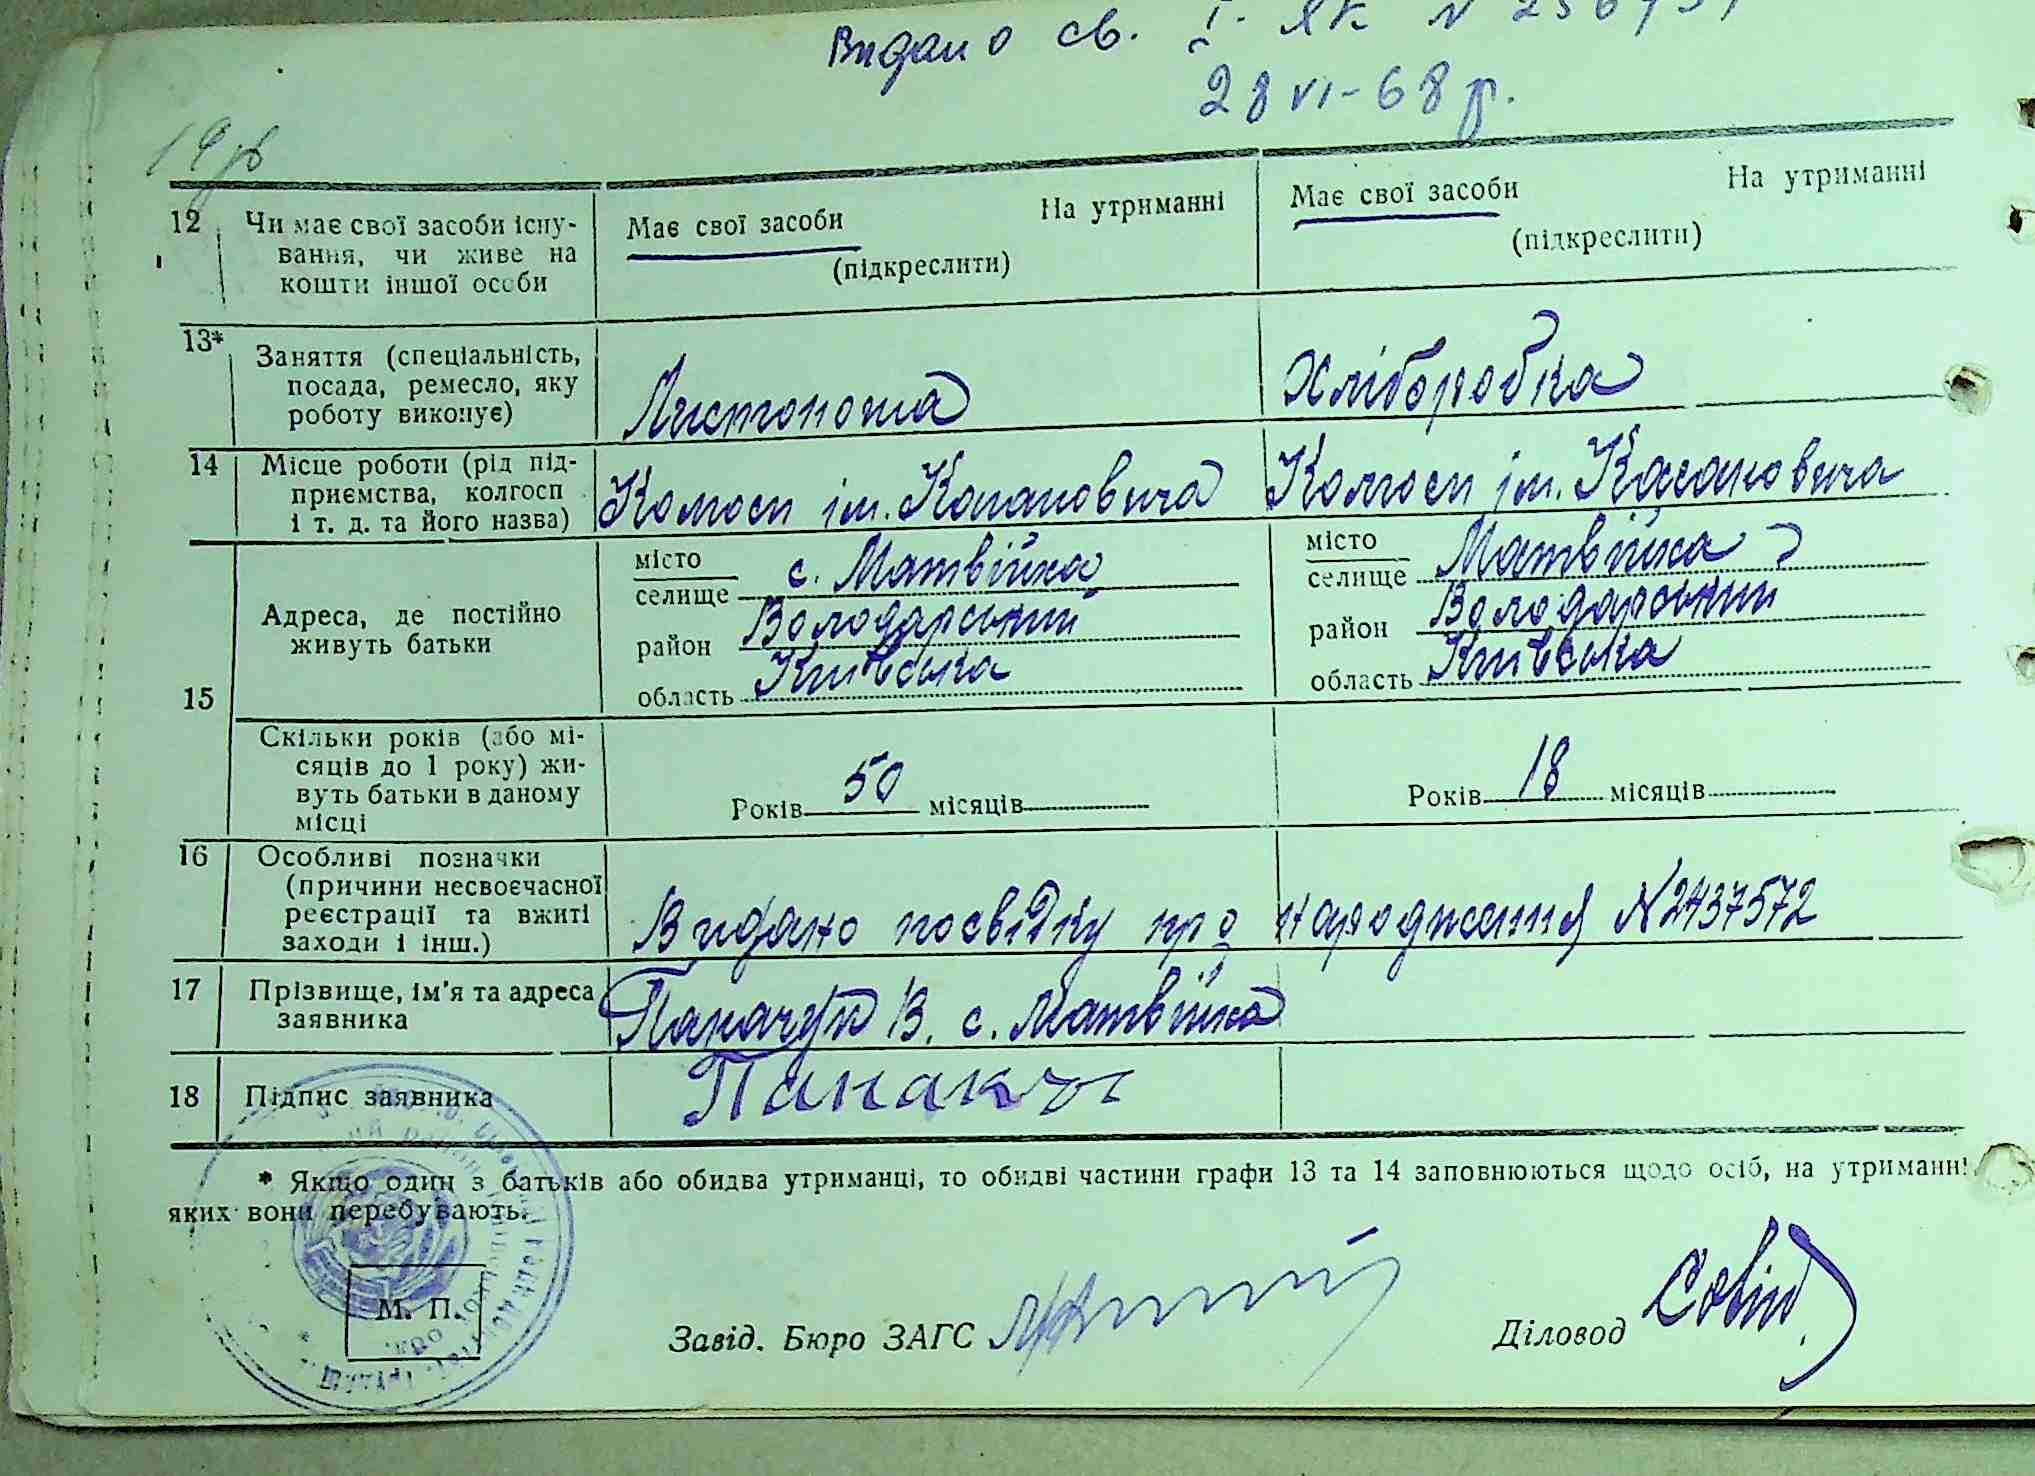 Видано св. І-ЯК N
28 VI-68 р.
12 Чи має свої засоби існу-
вання, чи живе на
кошти іншої особи
Має свої засоби На утриманні
(підкреслити)
Має свої засоби На утриманні
(підкреслити)
13* Заняття (спеціальність,
посада, ремесло, яку
роботу виконує)
Листоноша
Хліборобка
14 Місце роботи (рід під-
приємства, колгосп
і т. д. та його назва)
Колгосп ім. Кагановича
Колгосп ім. Кагановича
15 Адреса, де постійно
живуть батьки
місто
селище с. Матвійха
район Володарський
область Київська
місто
селище Матвійха
район Володарський
область Київська
Скільки років (або мі-
сяців до 1 року) жи-
вуть батьки в даному
місці
Років 50 місяців
Років 18 місяців
16 Особливі позначки
(причини несвоєчасної
реєстрації та вжиті
заходи і інш.)
Видано посвідку про народження N2437572
17 Прізвище, ім'я та адреса
заявника
В. с. Матвійха
18 Підпис заявника
* Якщо один з батьків або обидва утриманці, то обидві частини графи 13 та 14 заповнюються щодо осіб, на утриманні
яких вони перебувають.
М. П.
Завід. Бюро ЗАГС
Діловод